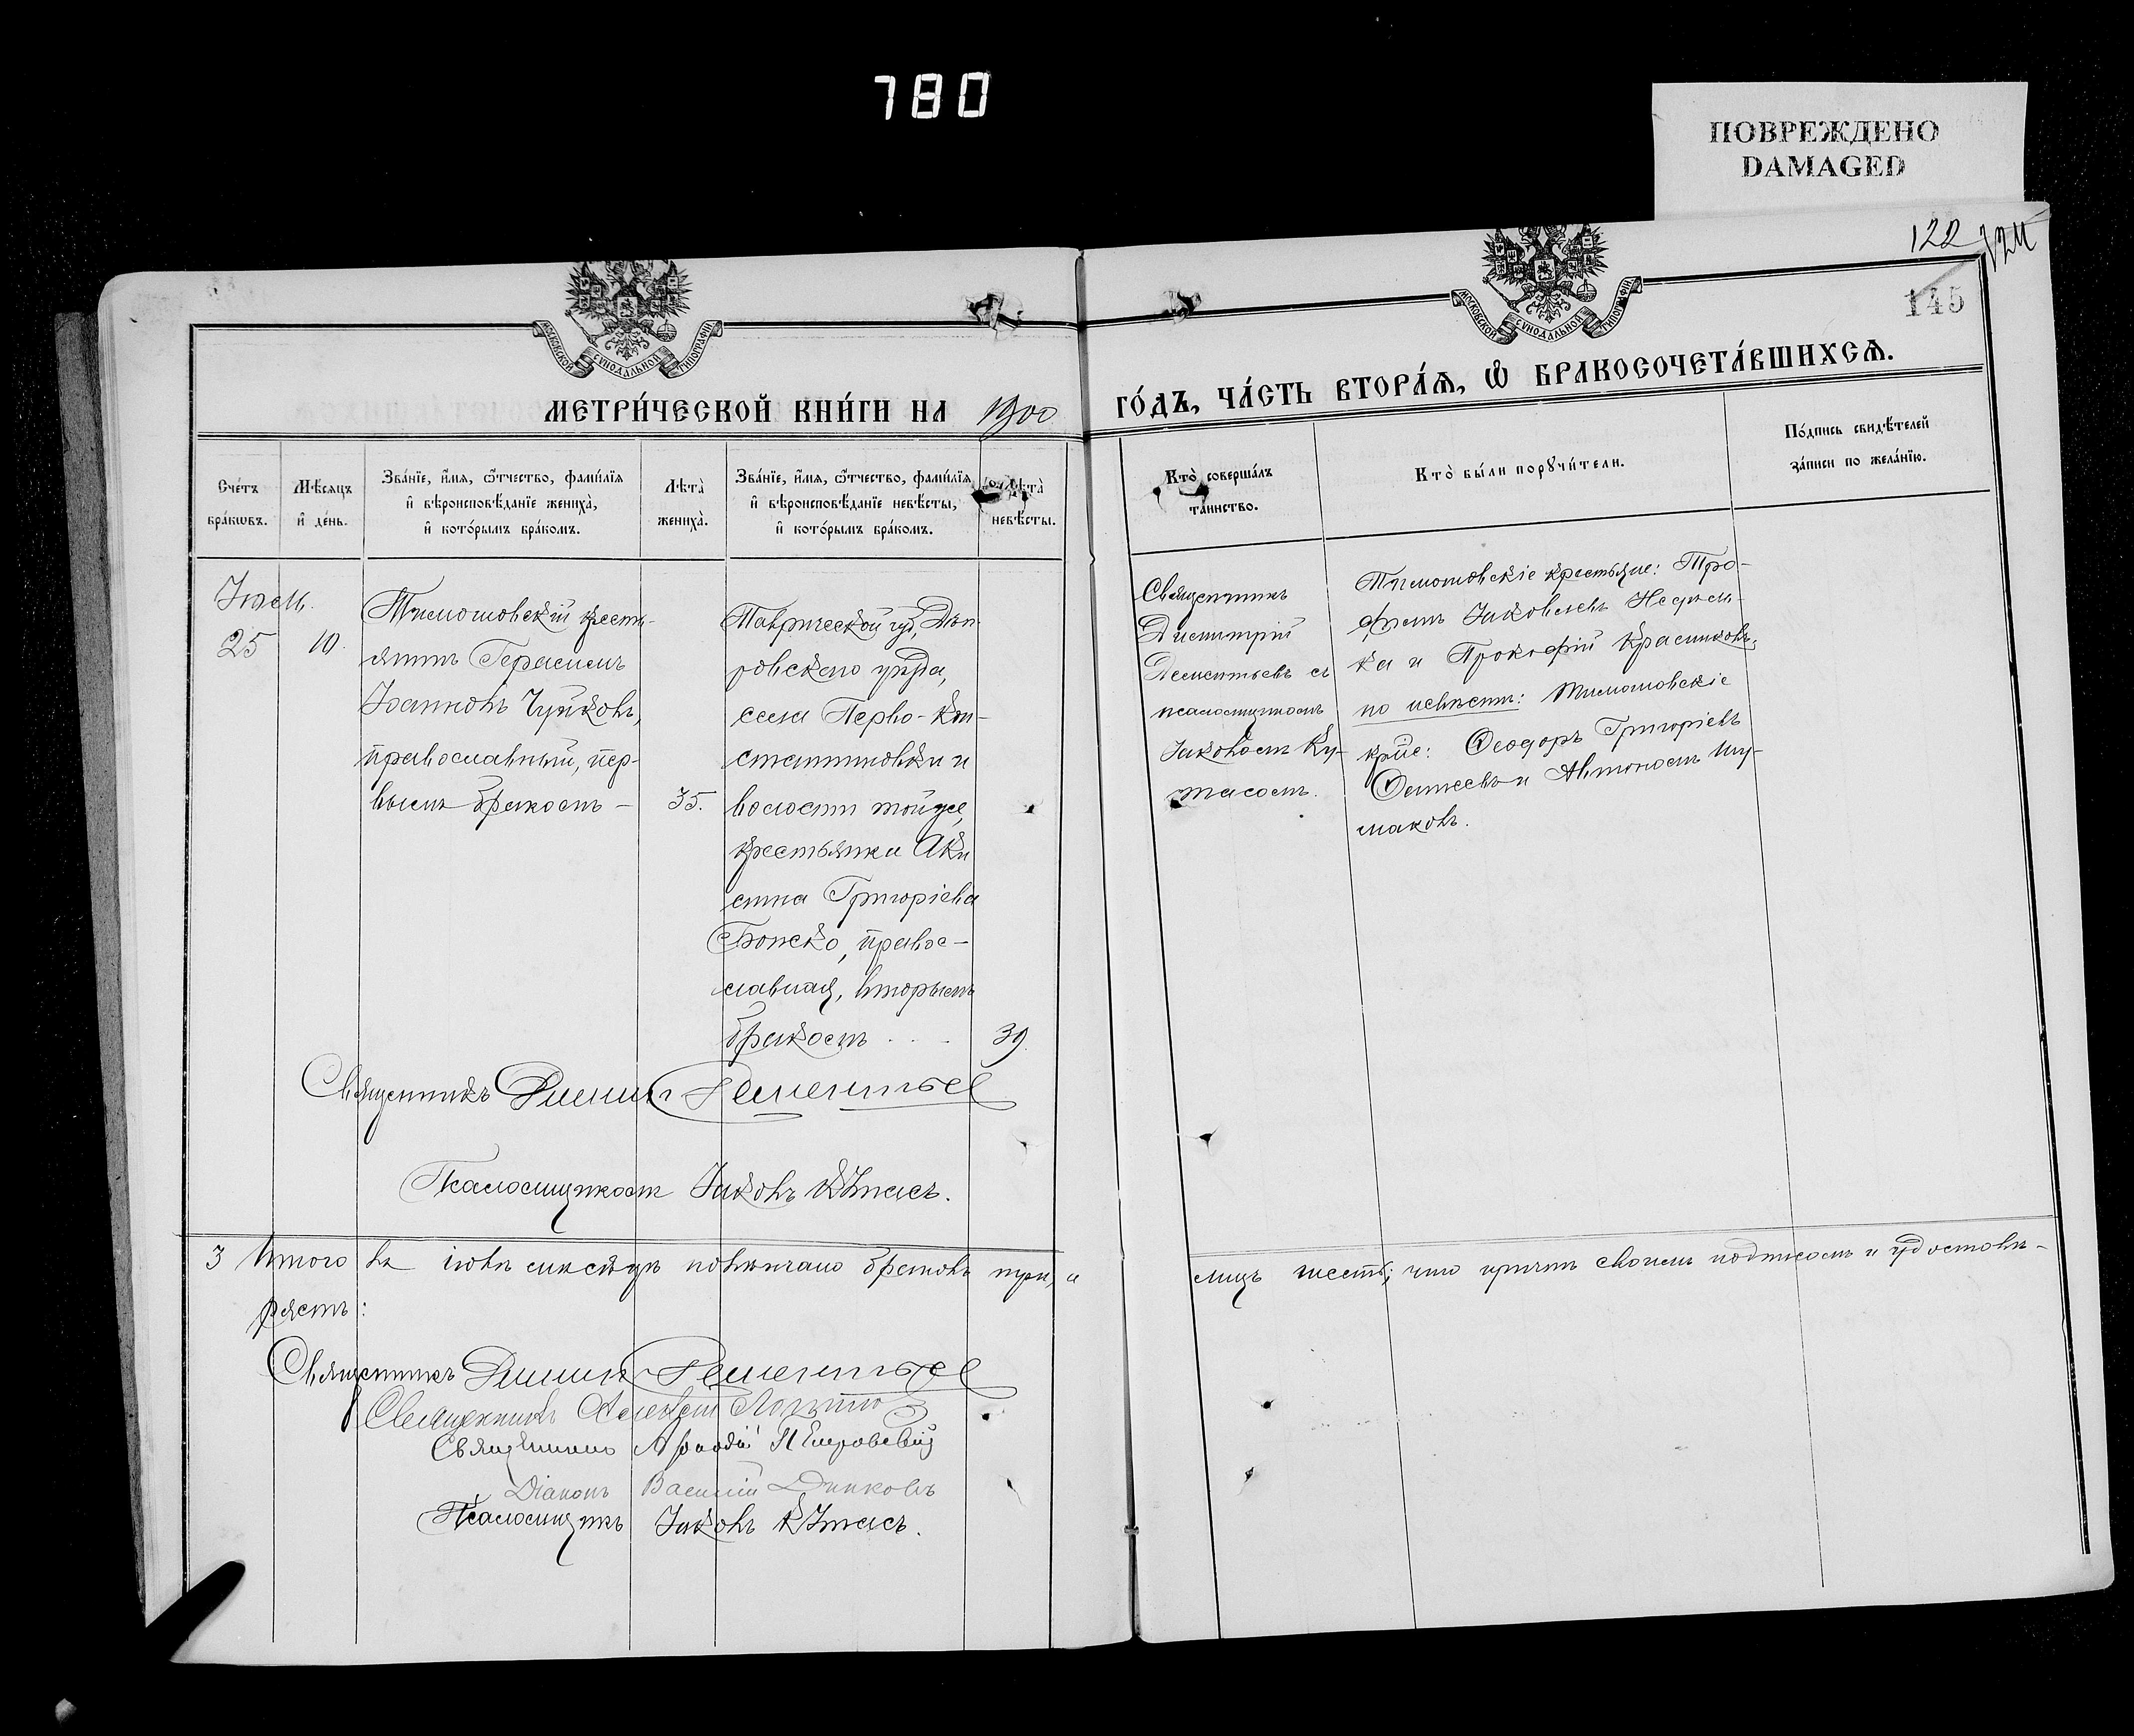 780
ПОВРЕЖДЕНО
DAMAGED
122
145
МОСКОВСКОЙ СУНОДАЛЬНОЙ ТИПОГРАФІИ
МОСКОВСКОЙ СУНОДАЛЬНОЙ ТИПОГРАФІИ
МЕТРИ́ЧЕСКОЙ КНИ́ГИ НА 1900
ГО́ДЪ, ЧА́СТЬ ВТОРА́Я, Ѽ БРАКОСОЧЕТА́ВШИХСЯ.
Сче́тъ
бра́кѡвъ.
Мѣ́сяцъ
и҆ де́нь.
Зва́нїе, и҆́мя, ѻ҆́тчество, фами́лїя
и҆ вѣроисповѣ́данїе жениха̀,
и҆ кото́рымъ бра́комъ.
Лѣта̀
жениха̀.
Зва́нїе, и҆́мя, ѻ҆́тчество, фами́лїя
и҆ вѣроисповѣ́данїе невѣ́сты,
и҆ кото́рымъ бра́комъ.
Лѣта̀
невѣ́сты.
Кто̀ соверша́лъ
та́инство.
Кто̀ бы́ли порꙋчи́тели.
По́дпись свидѣ́телей
за́писи по жела́нїю.
Іюль.
25
10.
Тимошовскій кресть-
янинъ Герасимъ
Іоанновъ Чуйковъ,
православный, пер-
вымъ бракомъ -
35.
Таврической губ., Днѣп-
ровскаго уѣзда,
села Перво-Кон-
стантиновки и
волости тойже,
крестьянка Аки
лина Григоріева
Бонско, правос-
лавная, вторымъ
бракомъ . . .
39.
Священникъ
Димитрій
Дементьевъ съ
псаломщикомъ
Іаковомъ Ку-
тасомъ.
Тимошовскіе крестьяне: Тро-
фимъ Іаковлевъ
ка и Прокофій Красниковъ;
по невѣстѣ: Тимошовскіе
кр-не: Ѳеодоръ Григоріевъ
и Автономъ Шу-
маковъ.
Священникъ Димит. Дементьев
Псаломщикомъ Іаковъ Кутасъ.
3 Итого въ іюлѣ мѣсяцѣ повѣнчано браковъ три, а
лицъ шесть; что причтъ своимъ подписомъ и удостовѣ-
ряетъ:
Священникъ Димит. Дементьев
Священникъ Алексѣй
Священникъ Аркадій Петровскій
Діаконъ Василій Дниковъ
Псаломщикъ Іаковъ Кутасъ.